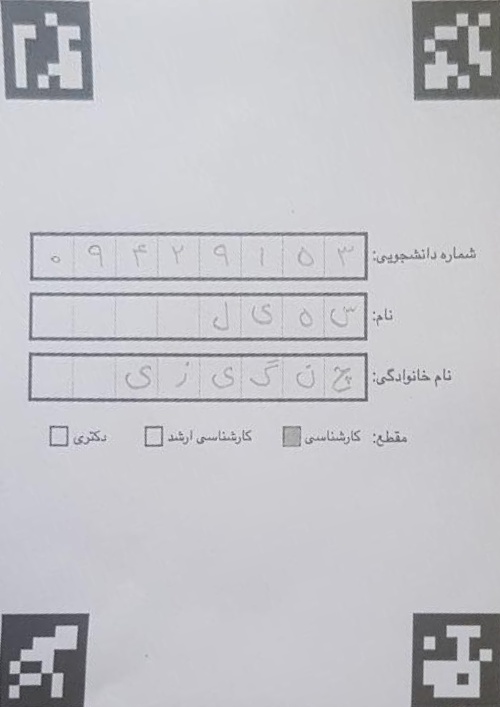 شماره دانشجویی: ۰۹۴۲۹۱۵۳
نام: س ه ی ل
نام خانوادگی: چ ن گ ی ز ی
مقطع: کارشناسی کارشناسی ارشد دکتری